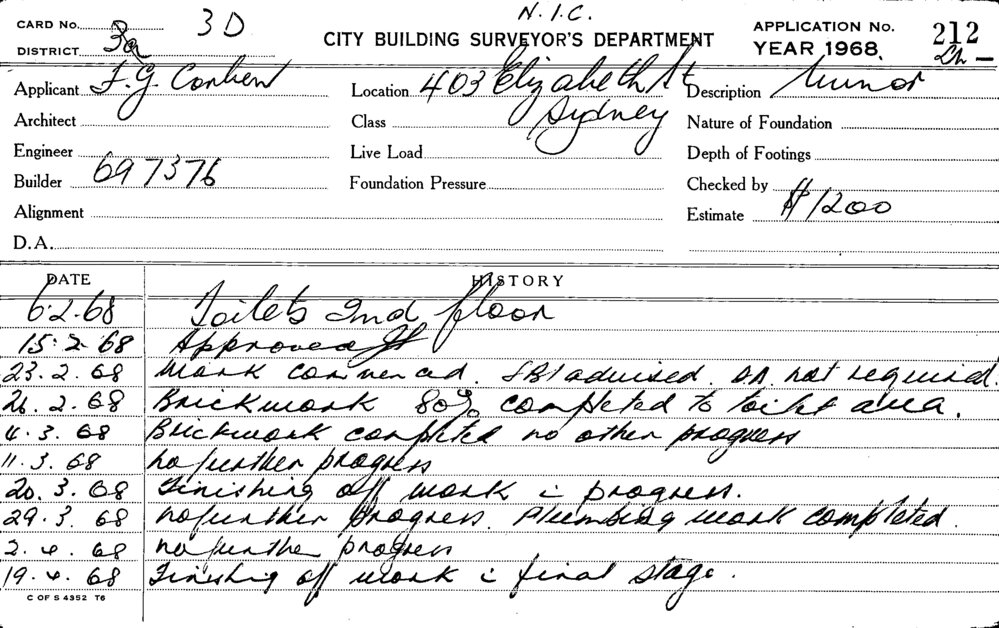 N.I.C.
CARD No. 3D
CITY BUILDING SURVEYOR'S DEPARTMENT
APPLICATION No. 212
DISTRICT 3a
YEAR 1968.
Applicant F.G. Conben
Location 403 Elizabeth St
Sydney
Description Minor
Architect
Class
Nature of Foundation
Engineer
Live Load
Depth of Footings
Builder 697376
Foundation Pressure
Checked by
Alignment
Estimate $1200
D.A.
DATE HISTORY
6.2.68 Toilets 2nd floor
15.2.68 Approved
23.2.68 Work commenced. SBI advised. DA not required.
26.2.68 Brickwork 80% completed to toilet area.
4.3.68 Brickwork completed no other progress
11.3.68 no further progress
20.3.68 Finishing off work i progress.
29.3.68 no further progress. Plumbing work completed.
2.4.68 no further progress
19.4.68 Finishing off work i final stage.
C OF S 4352 T6